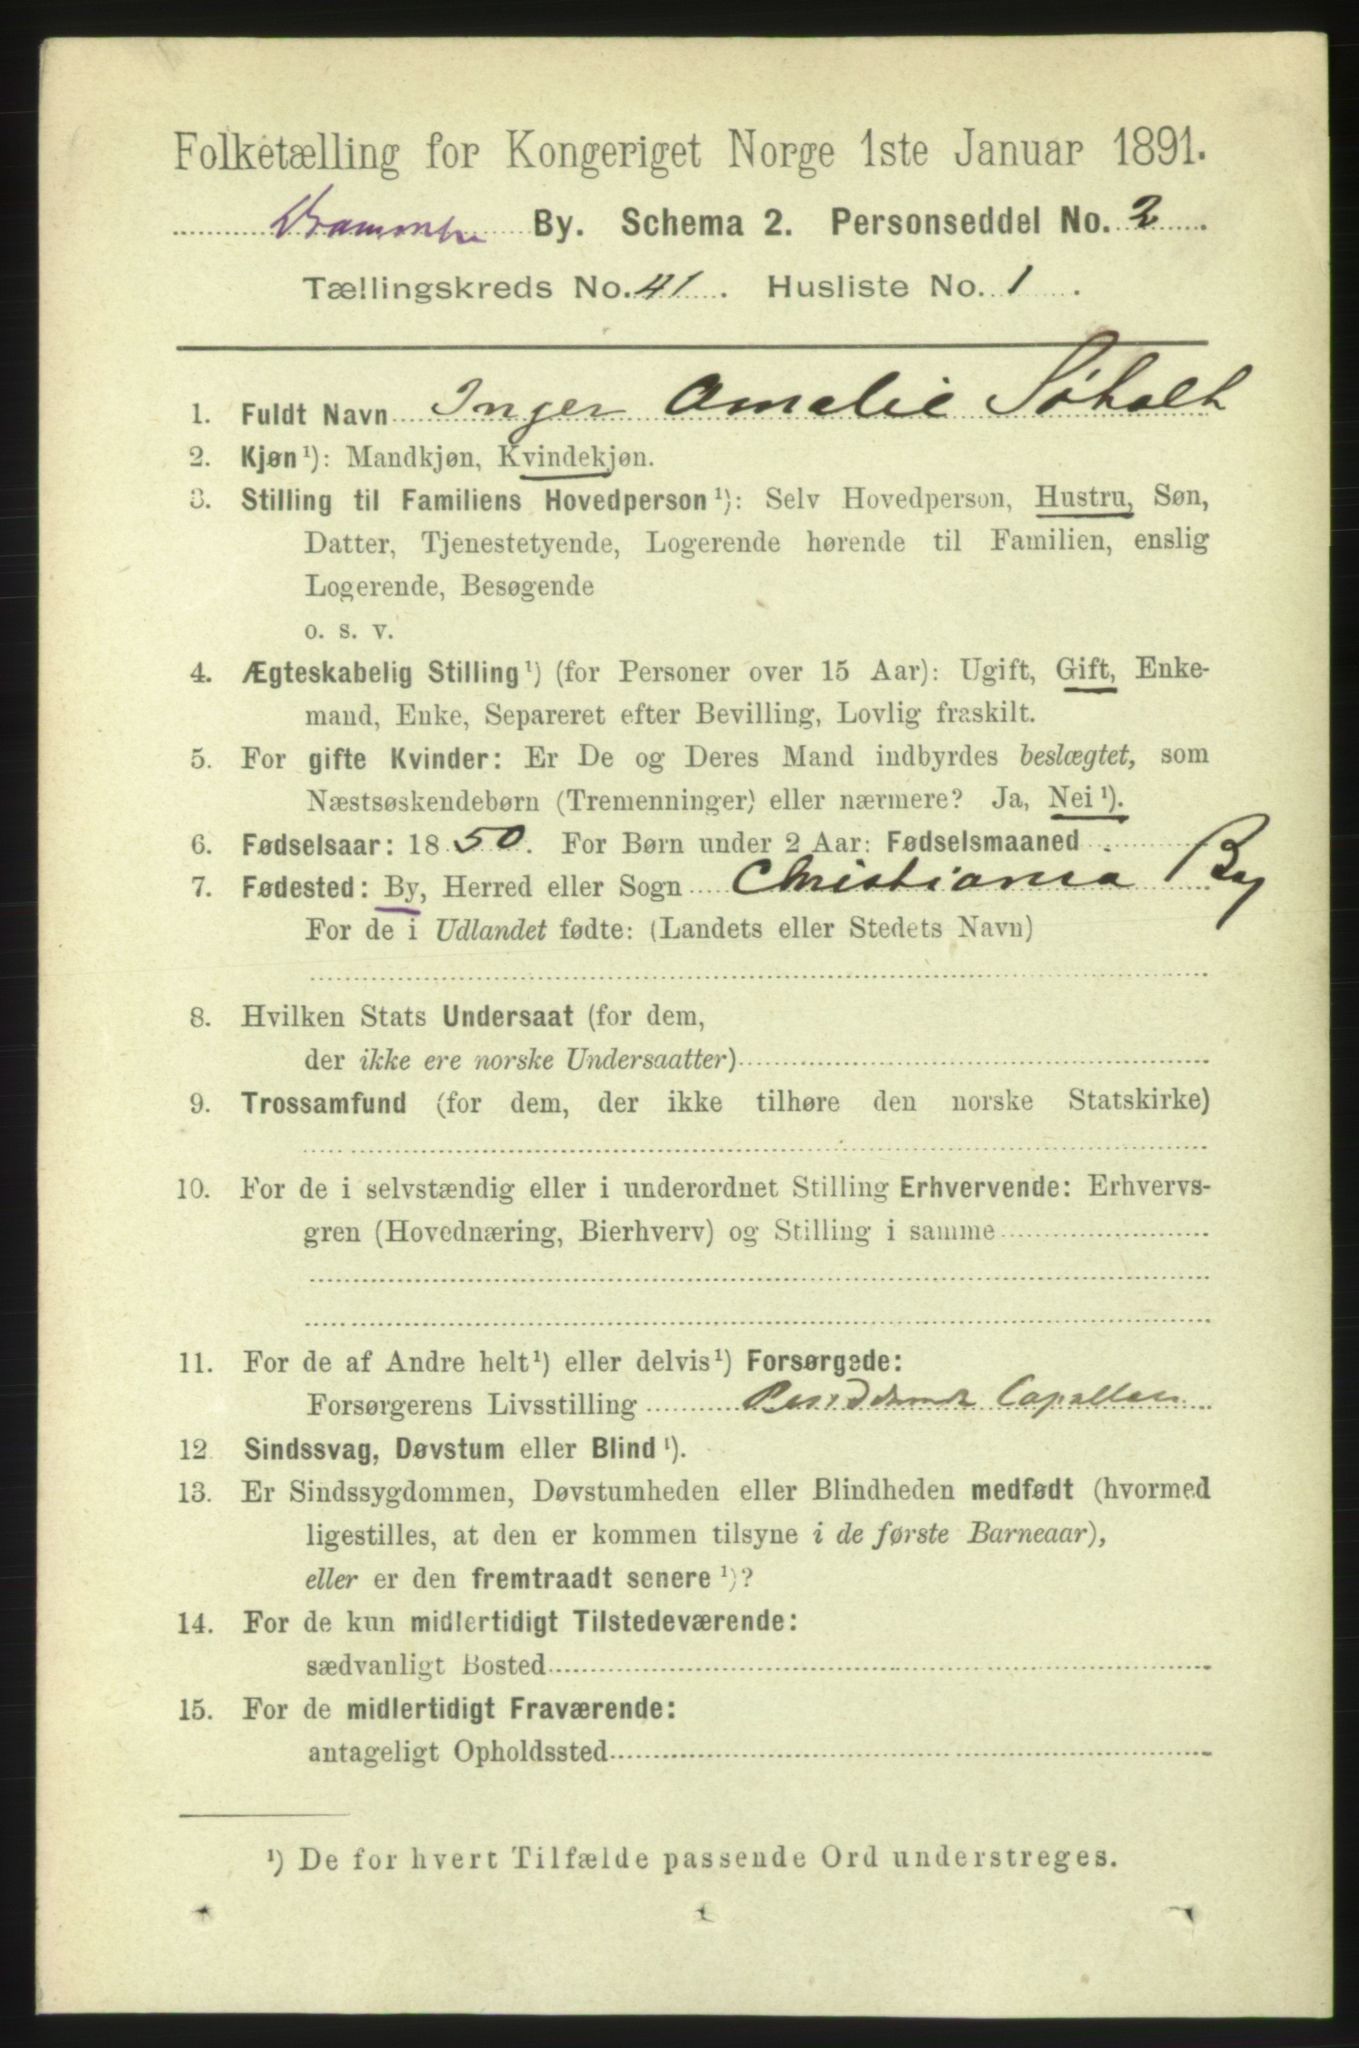 Folketælling for Kongeriget Norge 1ste Januar 1891.
Drammen By. Schema 2. Personseddel No. 2.
Tællingskreds No. 41. Husliste No. 1.
1. Fuldt Navn Inger Amalie Søholt
2. Kjøn ¹): Mandkjøn, Kvindekjøn.
3. Stilling til Familiens Hovedperson ¹): Selv Hovedperson, Hustru, Søn,
Datter, Tjenestetyende, Logerende hørende til Familien, enslig
Logerende, Besøgende
o. s. v.
4. Ægteskabelig Stilling ¹) (for Personer over 15 Aar): Ugift, Gift, Enke-
mand, Enke, Separeret efter Bevilling, Lovlig fraskilt.
5. For gifte Kvinder: Er De og Deres Mand indbyrdes beslægtet, som
Næstsøskendebørn (Tremenninger) eller nærmere? Ja, Nei ¹).
6. Fødselsaar: 1850. For Børn under 2 Aar: Fødselsmaaned .
7. Fødested: By, Herred eller Sogn Christiania By
For de i Udlandet fødte: (Landets eller Stedets Navn)
8. Hvilken Stats Undersaat (for dem,
der ikke ere norske Undersaatter)
9. Trossamfund (for dem, der ikke tilhøre den norske Statskirke)
10. For de i selvstændig eller i underordnet Stilling Erhvervende: Erhvervs-
gren (Hovednæring, Bierhverv) og Stilling i samme
11. For de af Andre helt ¹) eller delvis ¹) Forsørgede:
Forsørgerens Livsstilling Capellan
12. Sindssvag, Døvstum eller Blind ¹).
13. Er Sindssygdommen, Døvstumheden eller Blindheden medfødt (hvormed
ligestilles, at den er kommen tilsyne i de første Barneaar),
eller er den fremtraadt senere ¹)?
14. For de kun midlertidigt Tilstedeværende:
sædvanligt Bosted
15. For de midlertidigt Fraværende:
antageligt Opholdssted
¹) De for hvert Tilfælde passende Ord understreges.